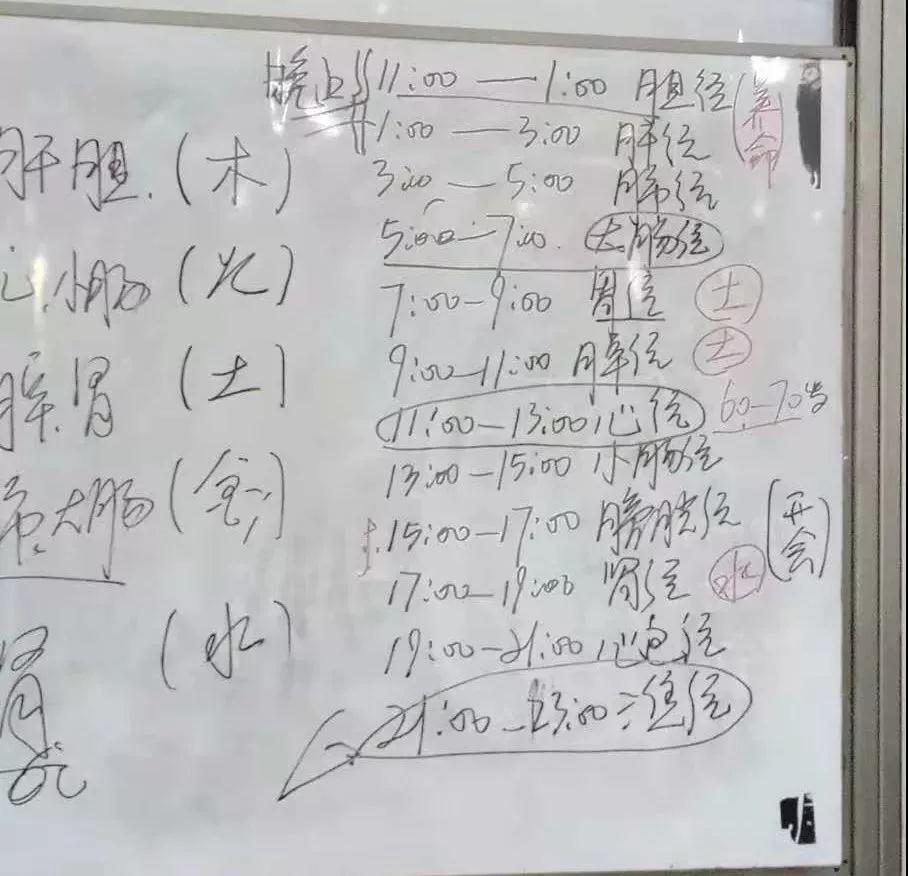 晚上 11:00 — 1:00 胆经 (养命)
1:00 — 3:00 肝经
3:00 — 5:00 肺经
5:00 — 7:00 大肠经
7:00 — 9:00 胃经 土
9:00 — 11:00 脾经 土
11:00 — 13:00 心经 60—70岁
13:00 — 15:00 小肠经
15:00 — 17:00 膀胱经 (开会)
17:00 — 19:00 肾经 水
19:00 — 21:00 心包经
21:00 — 23:00 三焦经
肝胆.(木)
心.小肠(火)
脾.胃(土)
肺.大肠(金)
肾(水)